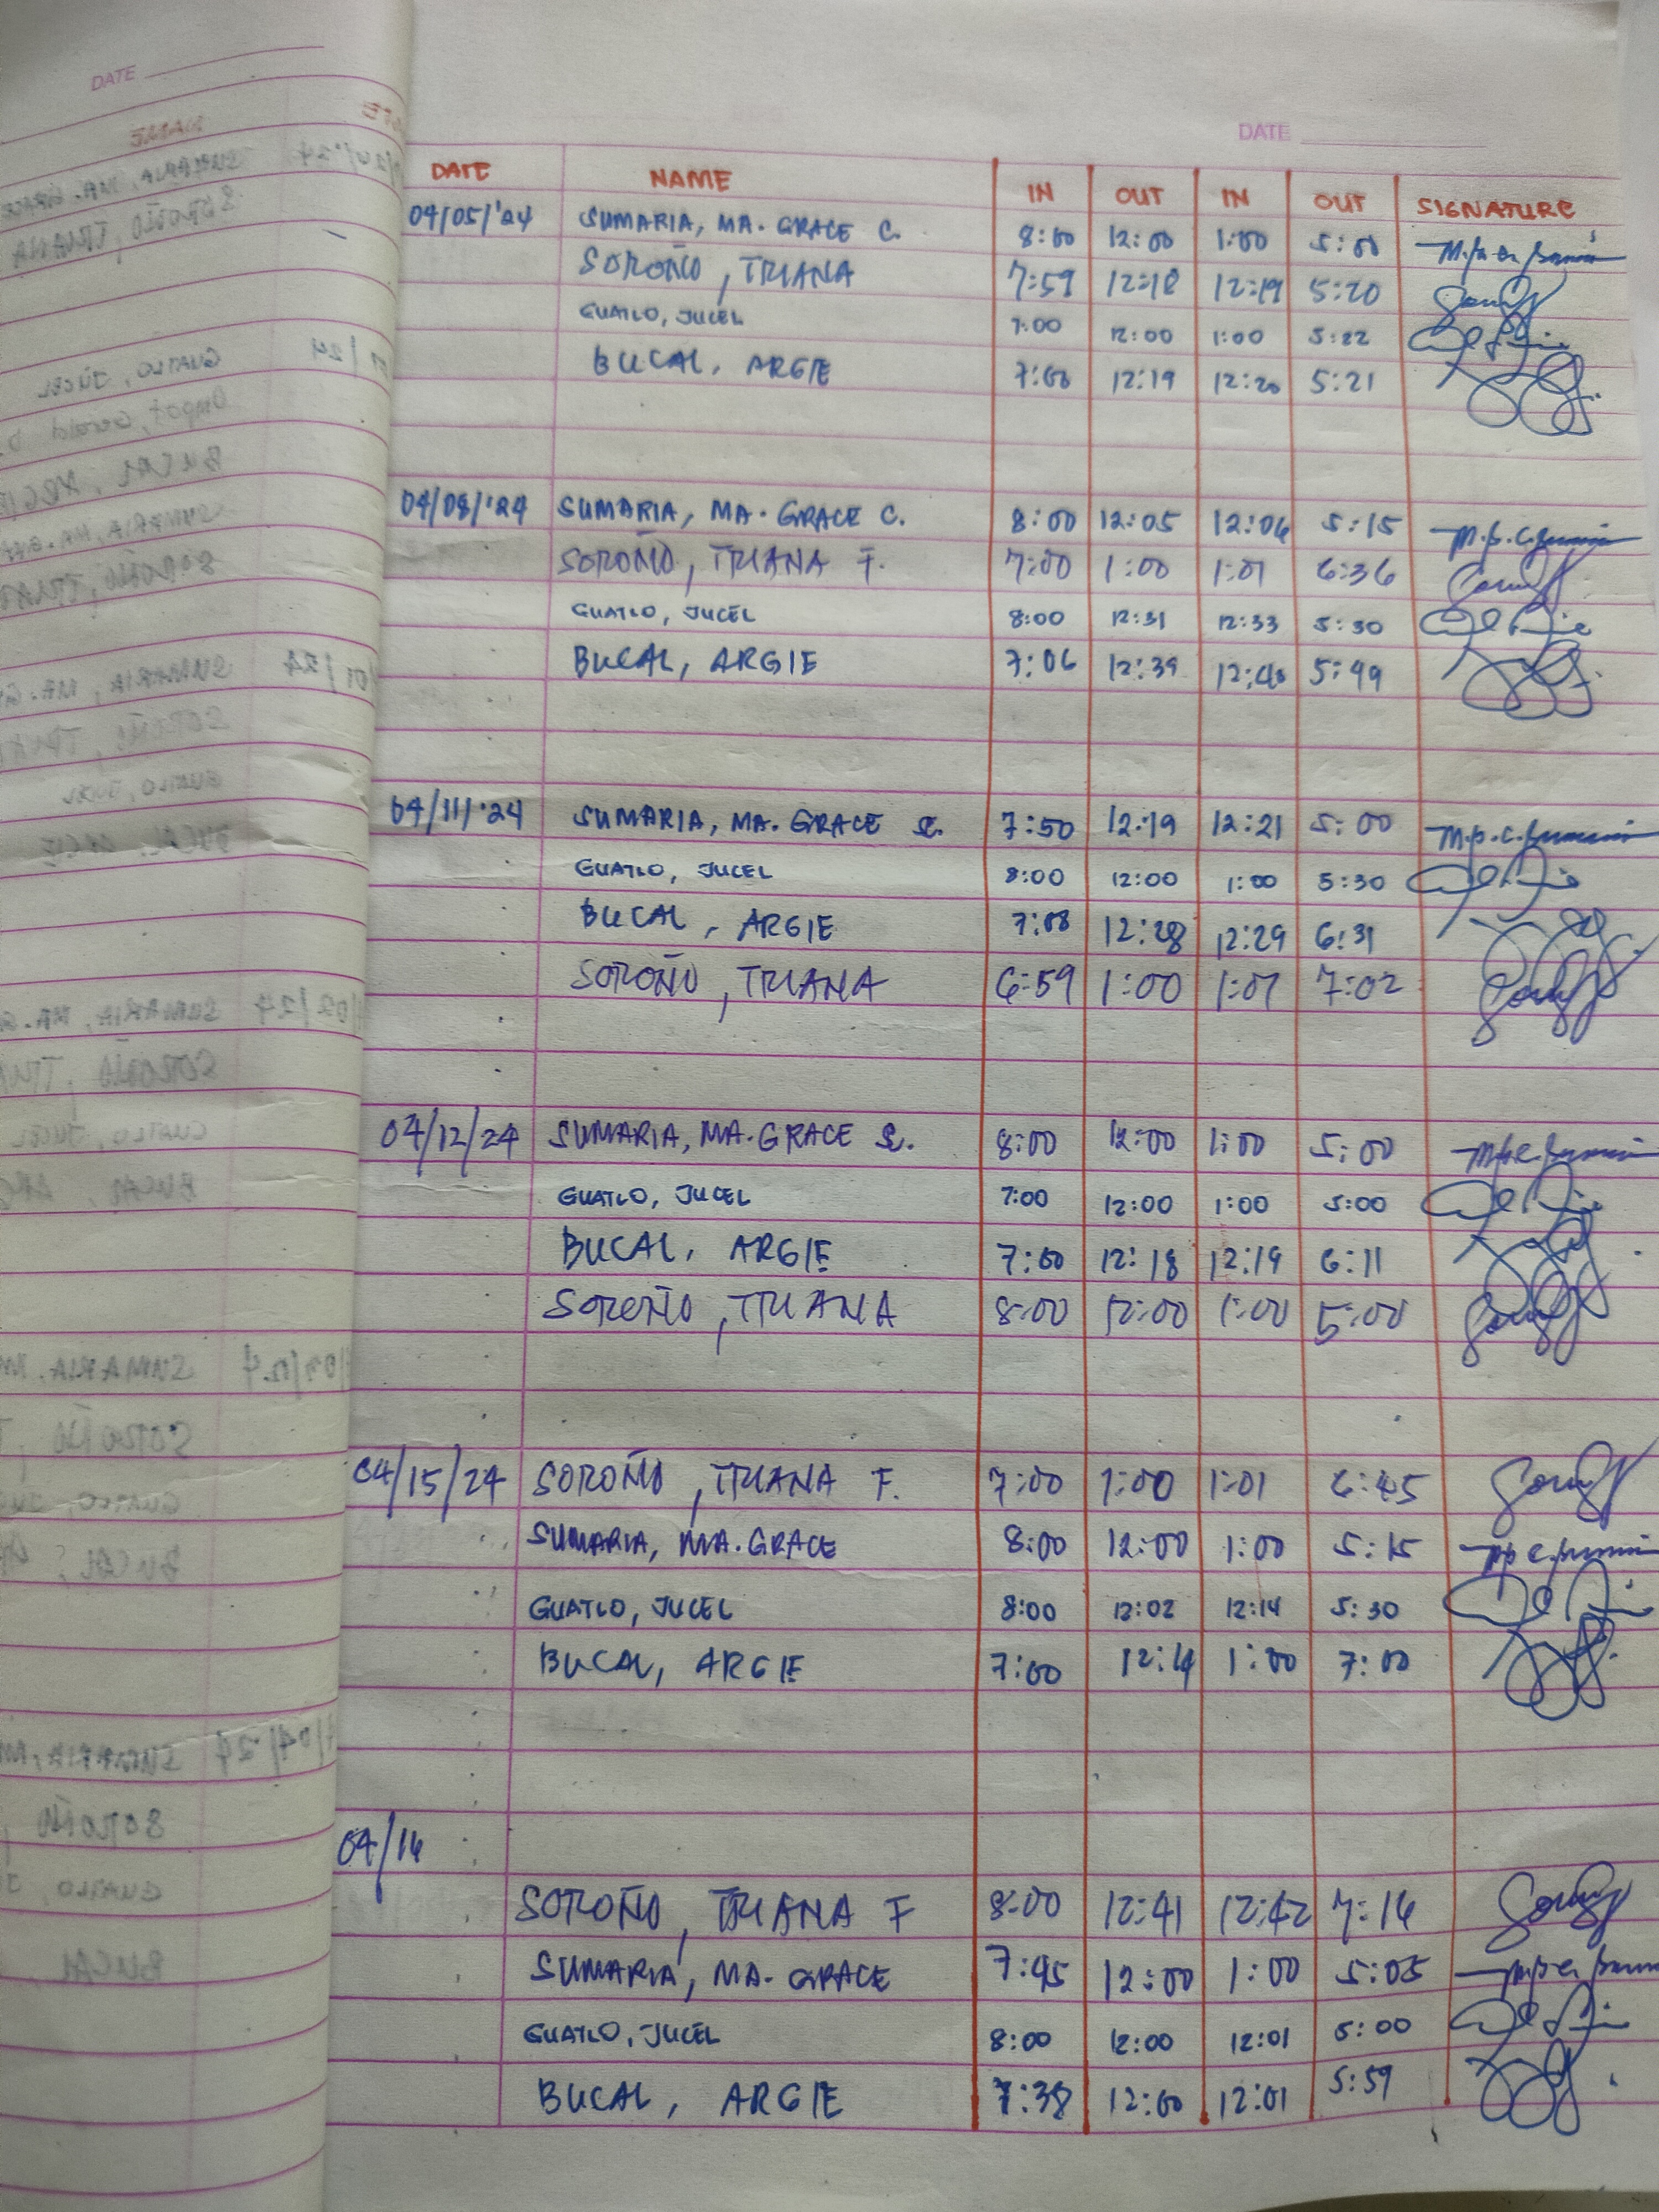 DATE
DATE
DATE NAME IN OUT IN OUT SIGNATURE
04/05/'24 SUMARIA, MA. GRACE C. 8:00 12:00 1:00 5:00
SOROÑO, TRIANA 7:59 12:18 12:19 5:20
GUATLO, JUCEL 7:00 12:00 1:00 5:22
BUCAL, ARGIE 7:00 12:19 12:20 5:21
04/08/'24 SUMARIA, MA. GRACE C. 8:00 12:05 12:06 5:15
SOROÑO, TRIANA F. 7:00 1:00 1:01 6:36
GUATLO, JUCEL 8:00 12:31 12:33 5:30
BUCAL, ARGIE 7:06 12:39 12:40 5:49
04/11/'24 SUMARIA, MA. GRACE C. 7:50 12:19 12:21 5:00
GUATLO, JUCEL 8:00 12:00 1:00 5:30
BUCAL, ARGIE 7:08 12:28 12:29 6:31
SOROÑO, TRIANA 6:59 1:00 1:01 7:02
04/12/24 SUMARIA, MA. GRACE C. 8:00 12:00 1:00 5:00
GUATLO, JUCEL 7:00 12:00 1:00 5:00
BUCAL, ARGIE 7:00 12:18 12:19 6:11
SOROÑO, TRIANA 8:00 12:00 1:00 5:00
04/15/24 SOROÑO, TRIANA F. 7:00 1:00 1:01 6:45
SUMARIA, MA. GRACE 8:00 12:00 1:00 5:15
GUATLO, JUCEL 8:00 12:02 12:14 5:30
BUCAL, ARGIE 7:00 12:14 1:00 7:00
04/16
SOROÑO, TRIANA F 8:00 12:41 12:42 7:16
SUMARIA, MA. GRACE 7:45 12:00 1:00 5:05
GUATLO, JUCEL 8:00 12:00 12:01 5:00
BUCAL, ARGIE 7:38 12:00 12:01 5:59